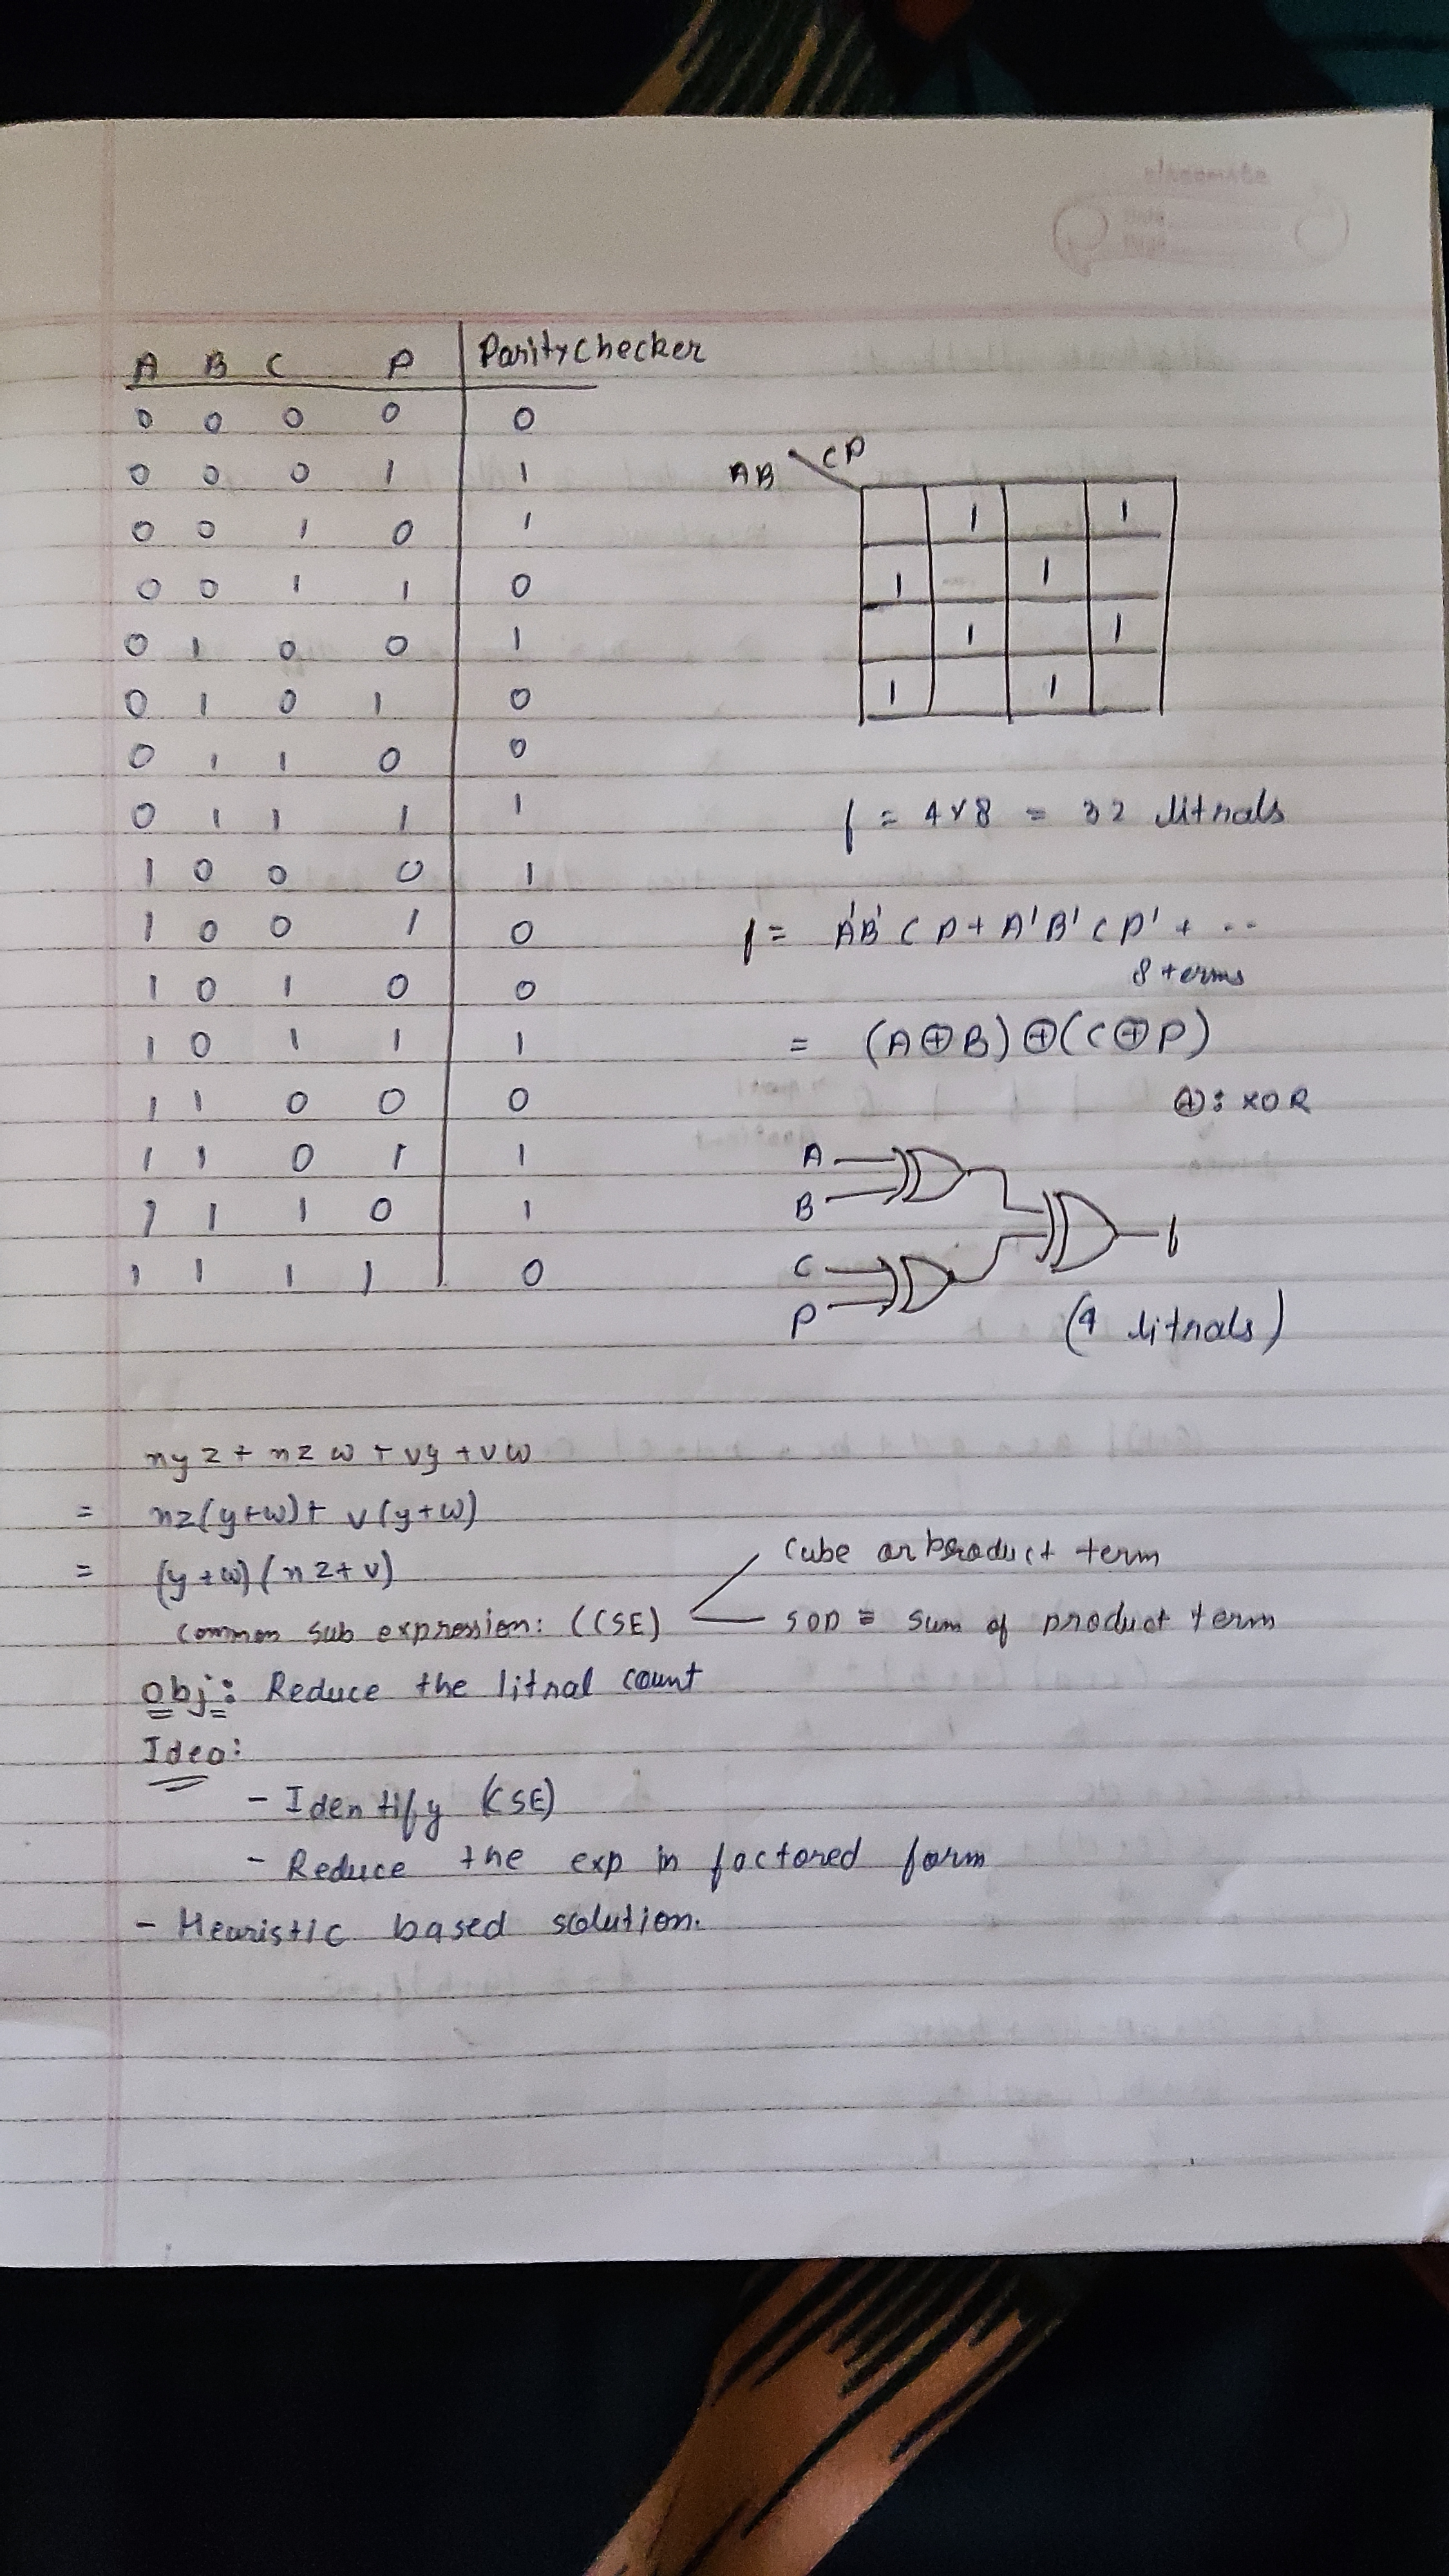 classmate
A B C P Parity Checker
0 0 0 0 0
0 0 0 1 1
0 0 1 0 1
0 0 1 1 0
0 1 0 0 1
0 1 0 1 0
0 1 1 0 0
0 1 1 1 1
1 0 0 0 1
1 0 0 1 0
1 0 1 0 0
1 0 1 1 1
1 1 0 0 0
1 1 0 1 1
1 1 1 0 1
1 1 1 1 0
AB CP
1 1
1 1
1 1
1 1
f = 4x8 = 32 litrals
f = A'B'CP + A'B'CP' + ..
8 terms
= (A⊕B)⊕(C⊕P)
⊕: XOR
A
B
C
P
f
(4 litrals)
xyz + xzw + vy + vw
= xz(y+w)+ v(y+w)
= (y+w)(xz+v)
Cube or product term
common sub expression: (CSE)
SOP = sum of product term
Obj: Reduce the litral count
Idea:
- Identify (CSE)
- Reduce the exp in factored form
- Heuristic based solution.